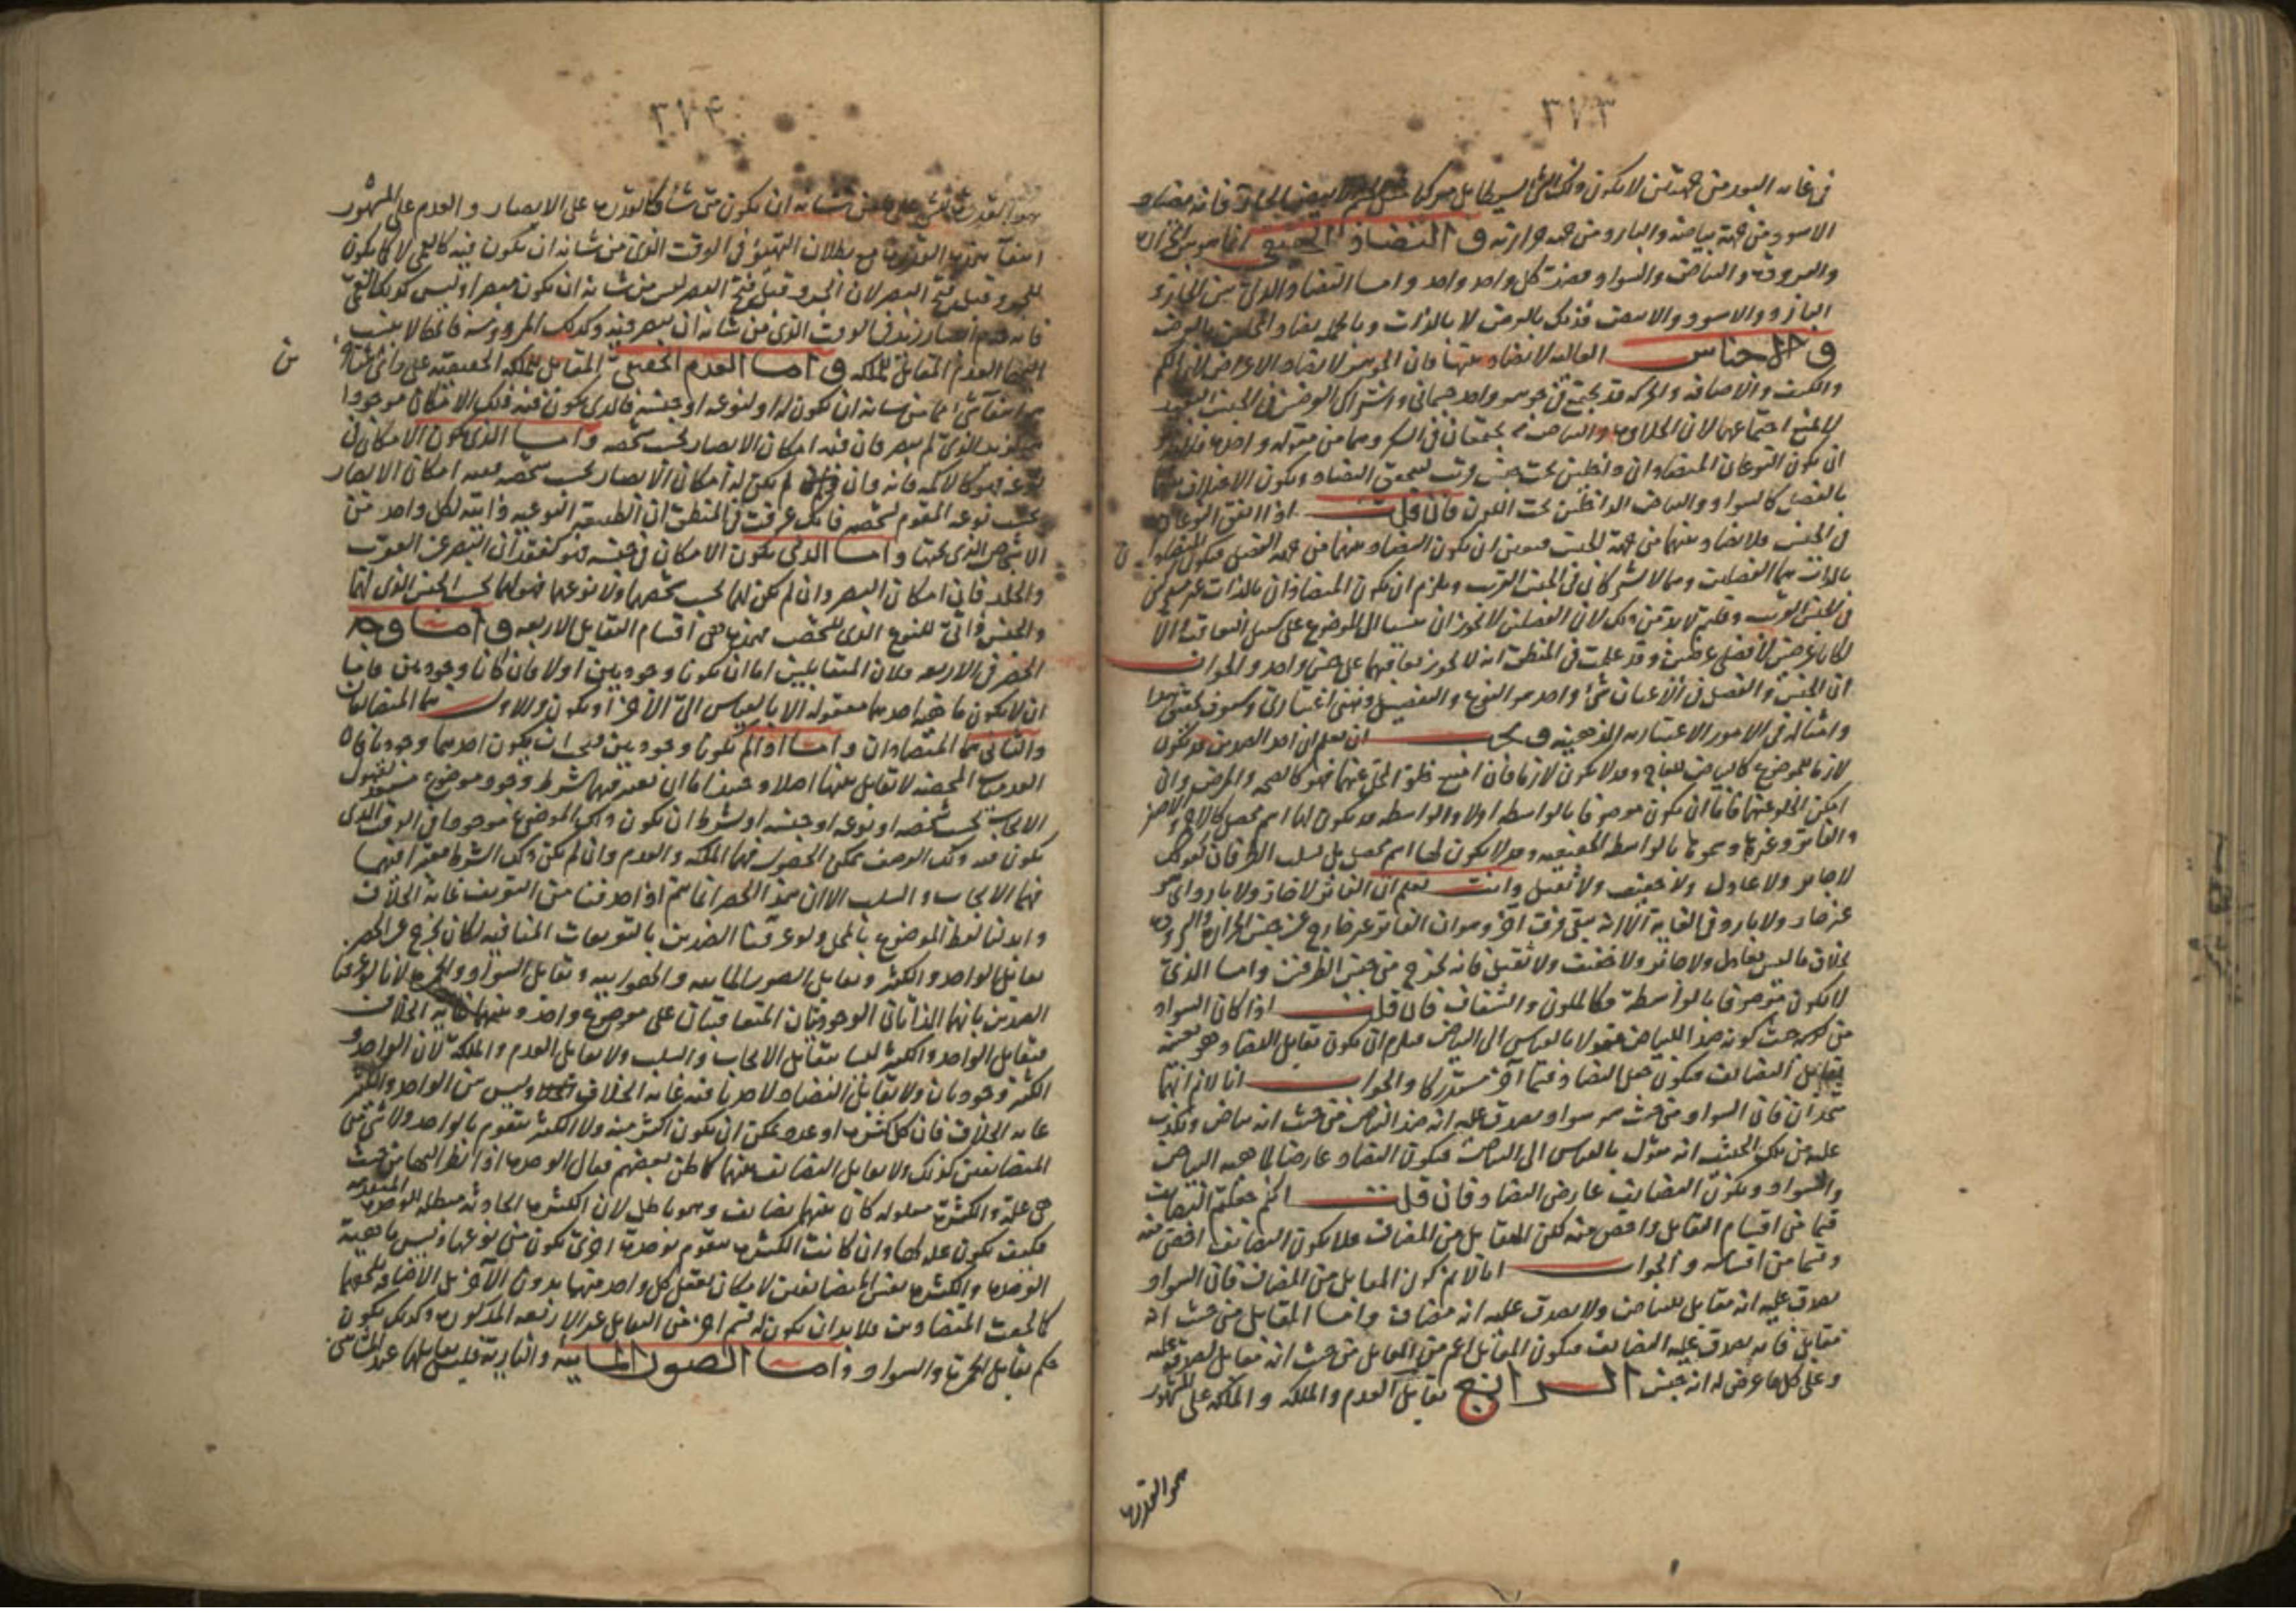 ٣٧٣
في غاية البعد من جهتين لا يكون ذلك الشي البسيط بل مركبا مثل الجسم الابيض الحار فانه مضاد
الاسود من جهة بياضه والبارد من جهة حرارته والتضاد الحقيقي انما هو بين الحرارة
والبرودة والبياض والسواد فضد كل واحد واحد واما التضاد الذي بين الحار و
البارد والاسود والابيض فذلك بالعرض لا بالذات
والاجناس العالية لا تضاد بينها فان الجوهر لا يضاد الاعراض والكم
والكيف والاضافه والحركه قد يجتمع في جوهر واحد جسماني واشتراك
لا يمنع اجتماعهما لان الحلاوة والبياض يجتمعان في السكر وهما من مقولة واحدة
ان يكون النوعان المتضادان داخلين تحت جنس قريب ليتحقق التضاد ويكون الاختلاف
بالفصل كالسواد والبياض الداخلين تحت اللون فان قلت اذا اتفق النوعان
في الجنس فلا تضاد بينهما من جهة الجنس فتعين ان يكون التضاد بينهما من جهة الفصل فيكون المتضادان
بالذات هما الفصلان وهما لا يشتركان في الجنس القريب ويلزم ان يكون المتضادان بالذات غير
في الجنس القريب وقلتم لا بد من ذلك لان الفصلين لا يجوز ان ينسبا الى الموضوع على سبيل التعاقب والا
لكانا عرضين لا فصلين وقد علمت في المنطق انه لا يجوز تعاقبهما على جنس واحد والجواب
ان الجنس والفصل في الاعيان شئ واحد هو النوع والتفصيل ذهني اعتباري وسوف تحقق هذا
وامثاله في الامور الاعتبارية الذهنية ويجب ان تعلم ان احد الضدين قد يكون
لازما للموضوع كالبياض للثلج وقد لا يكون لازما فان امتنع خلو المحل عنهما فهو كالصحة والمرض وان
امكن الخلو عنهما فاما ان يكون موصوفا بالواسطه اولا والواسطه قد يكون لها اسم محصل كالاحمر
والفاتر وغيرها وسموها بالواسطه الحقيقيه وقد لا يكون لها اسم محصل بل بسلب الطرفان كقولك
لا جائر ولا عادل ولا خفيف ولا ثقيل وانت تعلم ان الفاتر لا حار ولا بارد اي هو
غير حار ولا بارد في الغاية الا انه يبقى فرق آخر وهو ان الفاتر غير خارج عن جنس الحرارة والبرودة
بخلاف ما ليس بعادل ولا جائر ولا خفيف ولا ثقيل فانه يخرج من جنس الطرفين واما الذي
لا يكون موصوفا بالواسطة فكالملون والشفاف فان قلت اذا كان السواد
من حيث كونه ضدا للبياض مقولا بالقياس الى البياض فيلزم ان يكون تقابل التضاد هو بعينه
تقابل التضايف فيكون جعل التضاد قسما آخر مستدركا والجواب انا لا نم انهما
متحدان فان السواد من حيث هو سواد يصدق عليه انه ضد البياض من حيث انه بياض ويكذب
عليه من تلك الحيثيه انه مقول بالقياس الى البياض فيكون التضاد عارضا لماهية البياض
والسواد ويكون التضايف عارض التضاد فان قلت انكم جعلتم التضايف
قسما من اقسام التقابل واخص منه لكن المقابل من المضاف فلا يكون التضايف اخص منه
وقسما من اقسامه والجواب انا لا نم كون المقابل من المضاف فان السواد
يصدق عليه انه مقابل للبياض ولا يصدق عليه انه مضاف وانما المقابل من حيث انه
مقابل فانه يصدق عليه التضايف فيكون المقابل اعم من المقابل من حيث انه مقابل لصدقه عليه
وعلى كل ما عرض له انه جنس الرابع تقابل العدم والملكه والملكه على المشهور
هو القدرة
٣٧٤
هو القدرة للشئ على ما من شانه ان يكون متى شاء كالقدرة على الابصار والعدم على المشهور
انتفاء هذه القدرة مع بطلان التهيؤ في الوقت الذي من شانه ان يكون فيه كالعمى لا كما يكون
للجرو قبل فتح البصر لان الجرو قبل فتح البصر ليس من شانه ان يكون مبصرا وليس كذلك العمى
فانه عدم ابصار زيد في الوقت الذي من شانه ان يبصر فيه وكذلك المرودة فانها لا ينسب
اليها العدم المقابل للملكه واما العدم الحقيقي المقابل للملكه الحقيقيه على
هو انتفاء شئ مما من شانه ان يكون له او لنوعه او جنسه فالذي يكون فيه ذلك الامكان موجودا
زيد الذي لم يبصر فان فيه امكان الابصار بحسب شخصه واما الذي يكون الامكان في
نوعه فهو كالاكمه فانه وان لم يكن له امكان الابصار بحسب شخصه ففيه امكان الابصار
بحسب نوعه المقوم لشخصه فانك عرفت في المنطق ان الطبيعة النوعيه ذاتيه لكل واحد من
الاشخاص الذي تحتها واما الذي يكون الامكان في جنسه فهو كفقدان البصر عن العقرب
والخلد فان امكان البصر وان لم يكن لهما بحسب شخصهما ولا نوعهما فهو لهما بحسب الجنس الذي لهما
والجنس ذاتي للنوع الذي للشخص فهذه هي اقسام التقابل الاربعه واما وجه
الحصر في الاربعه فلان المتقابلين اما ان يكونا وجوديين اولا فان كانا وجوديين فاما
ان لا يكون ماهية احدهما معقولة الا بالقياس الى الآخر او يكون والاول هما المتضايفان
والثاني هما المتضادان واما اذا لم يكونا وجوديين فيجب ان يكون احدهما وجوديا فان
العدميات المحضه لا تقابل بينها اصلا وحينئذ اما ان يعتبر فيهما شرط وجود موضوع مستعد لقبول
الايجاب بحسب شخصه او نوعه او جنسه او بشرط ان يكون ذلك الموضوع موجودا في الوقت الذي
يكون فيه ذلك الوصف ممكن الحصول فهما الملكه والعدم وان لم يكن ذلك الشرط معتبرا فيهما
فهما الايجاب والسلب الا ان هذا الحصر انما يتم اذا حذفنا من التعريف غاية الخلاف
وابدلنا لفظ الموضوع بالمحل ولو عرفنا الضدين بالتعريفات المنافيه لكان يخرج عن الحصر
تقابل الواحد والكثير وتقابل الصور المائيه والهوائيه وتقابل السواد والحمرة لانا لو عرفنا
الضدين بانهما الذاتان الوجوديتان المتعاقبتان على موضوع واحد وبينهما غاية الخلاف
فتقابل الواحد والكثير ليسا بتقابل الايجاب والسلب ولا تقابل العدم والملكة لان الواحد و
الكثير وجوديان ولا تقابل التضاد لاعتبارنا فيه غاية الخلاف وليس بين الواحد والكثير
غاية الخلاف فان كل كثرة او عدد يمكن ان يكون اكثر منه ولا الكثير متقوم بالواحد ولا شئ من
المتضايفين كذلك ولا تقابل التضايف بينهما كما ظن بعضهم فقال الوحدة اذا نظر اليها من حيث
هي علة والكثرة معلوله كان بينهما تضايف وهو باطل لان الكثرة الحادثه مبطله للوحدة المتقدمه
فكيف تكون علة لها وان كانت الكثرة متقومه بوحدة اخرى تكون من نوعها وليس ماهية
الوحدة والكثرة نفس المتضايفين لامكان تعقل كل واحد منهما بدون الآخر بل الاضافه تلحقهما
كما لحقت المتضادين فلا بد ان يكون له قسم آخر من التقابل غير الاربعه المذكورة وكذلك يكون
حكم تقابل الحمرة والسواد واما الصور المائية والنارية فليس تقابلها عند المشائين